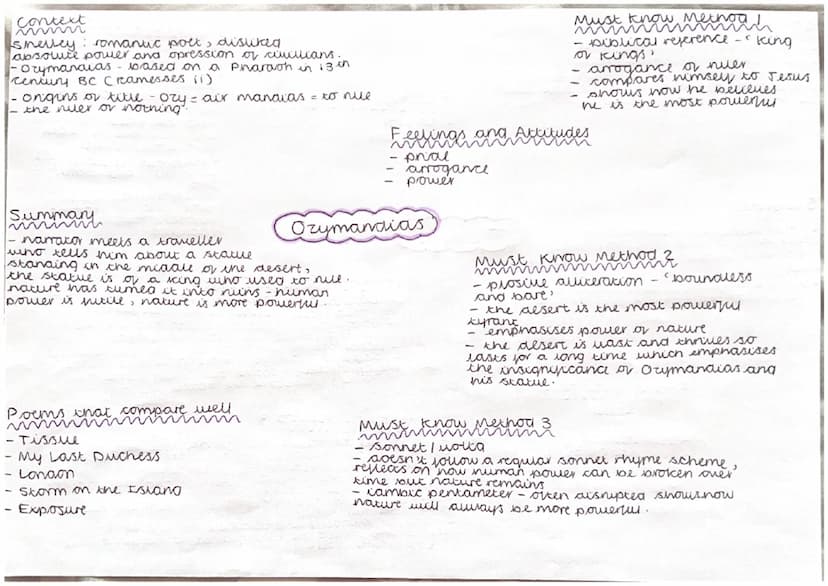 Context
Shelley: romantic poet, disliked
absolute power and opression of civilians.
- Ozymandias - based on a Pharaoh in 13th
century BC (ramesses ii)
- origins of title - Ozy = air mandias = to rule
- the ruler of nothing.
Must Know Method 1
- biblical reference - 'king
of kings'
- arrogance of ruler
- compares himself to Jesus
- shows how he believes
he is the most powerful
Feelings and Attitudes
- pride
- arrogance
- power
Summary
- narrator meets a traveller
who tells him about a statue
standing in the middle of the desert,
the statue is of a king who used to rule.
nature has turned it into ruins - human
power is futile, nature is more powerful.
Ozymandias'
Must Know Method 2
- plosive alliteration - 'boundless
and bare'
- the desert is the most powerful
tyrant
- emphasises power of nature
- the desert is vast and thrives so
lasts for a long time which emphasises
the insignificance of Ozymandias and
his statue.
Poems that compare well
- Tissue
- My Last Duchess
- London
- Storm on the Island
- Exposure
Must Know Method 3
- sonnet / volta
- doesn't follow a regular sonnet rhyme scheme,
reflects on how human power can be broken over
time but nature remains
- iambic pentameter - often disrupted shows how
nature will always be more powerful.